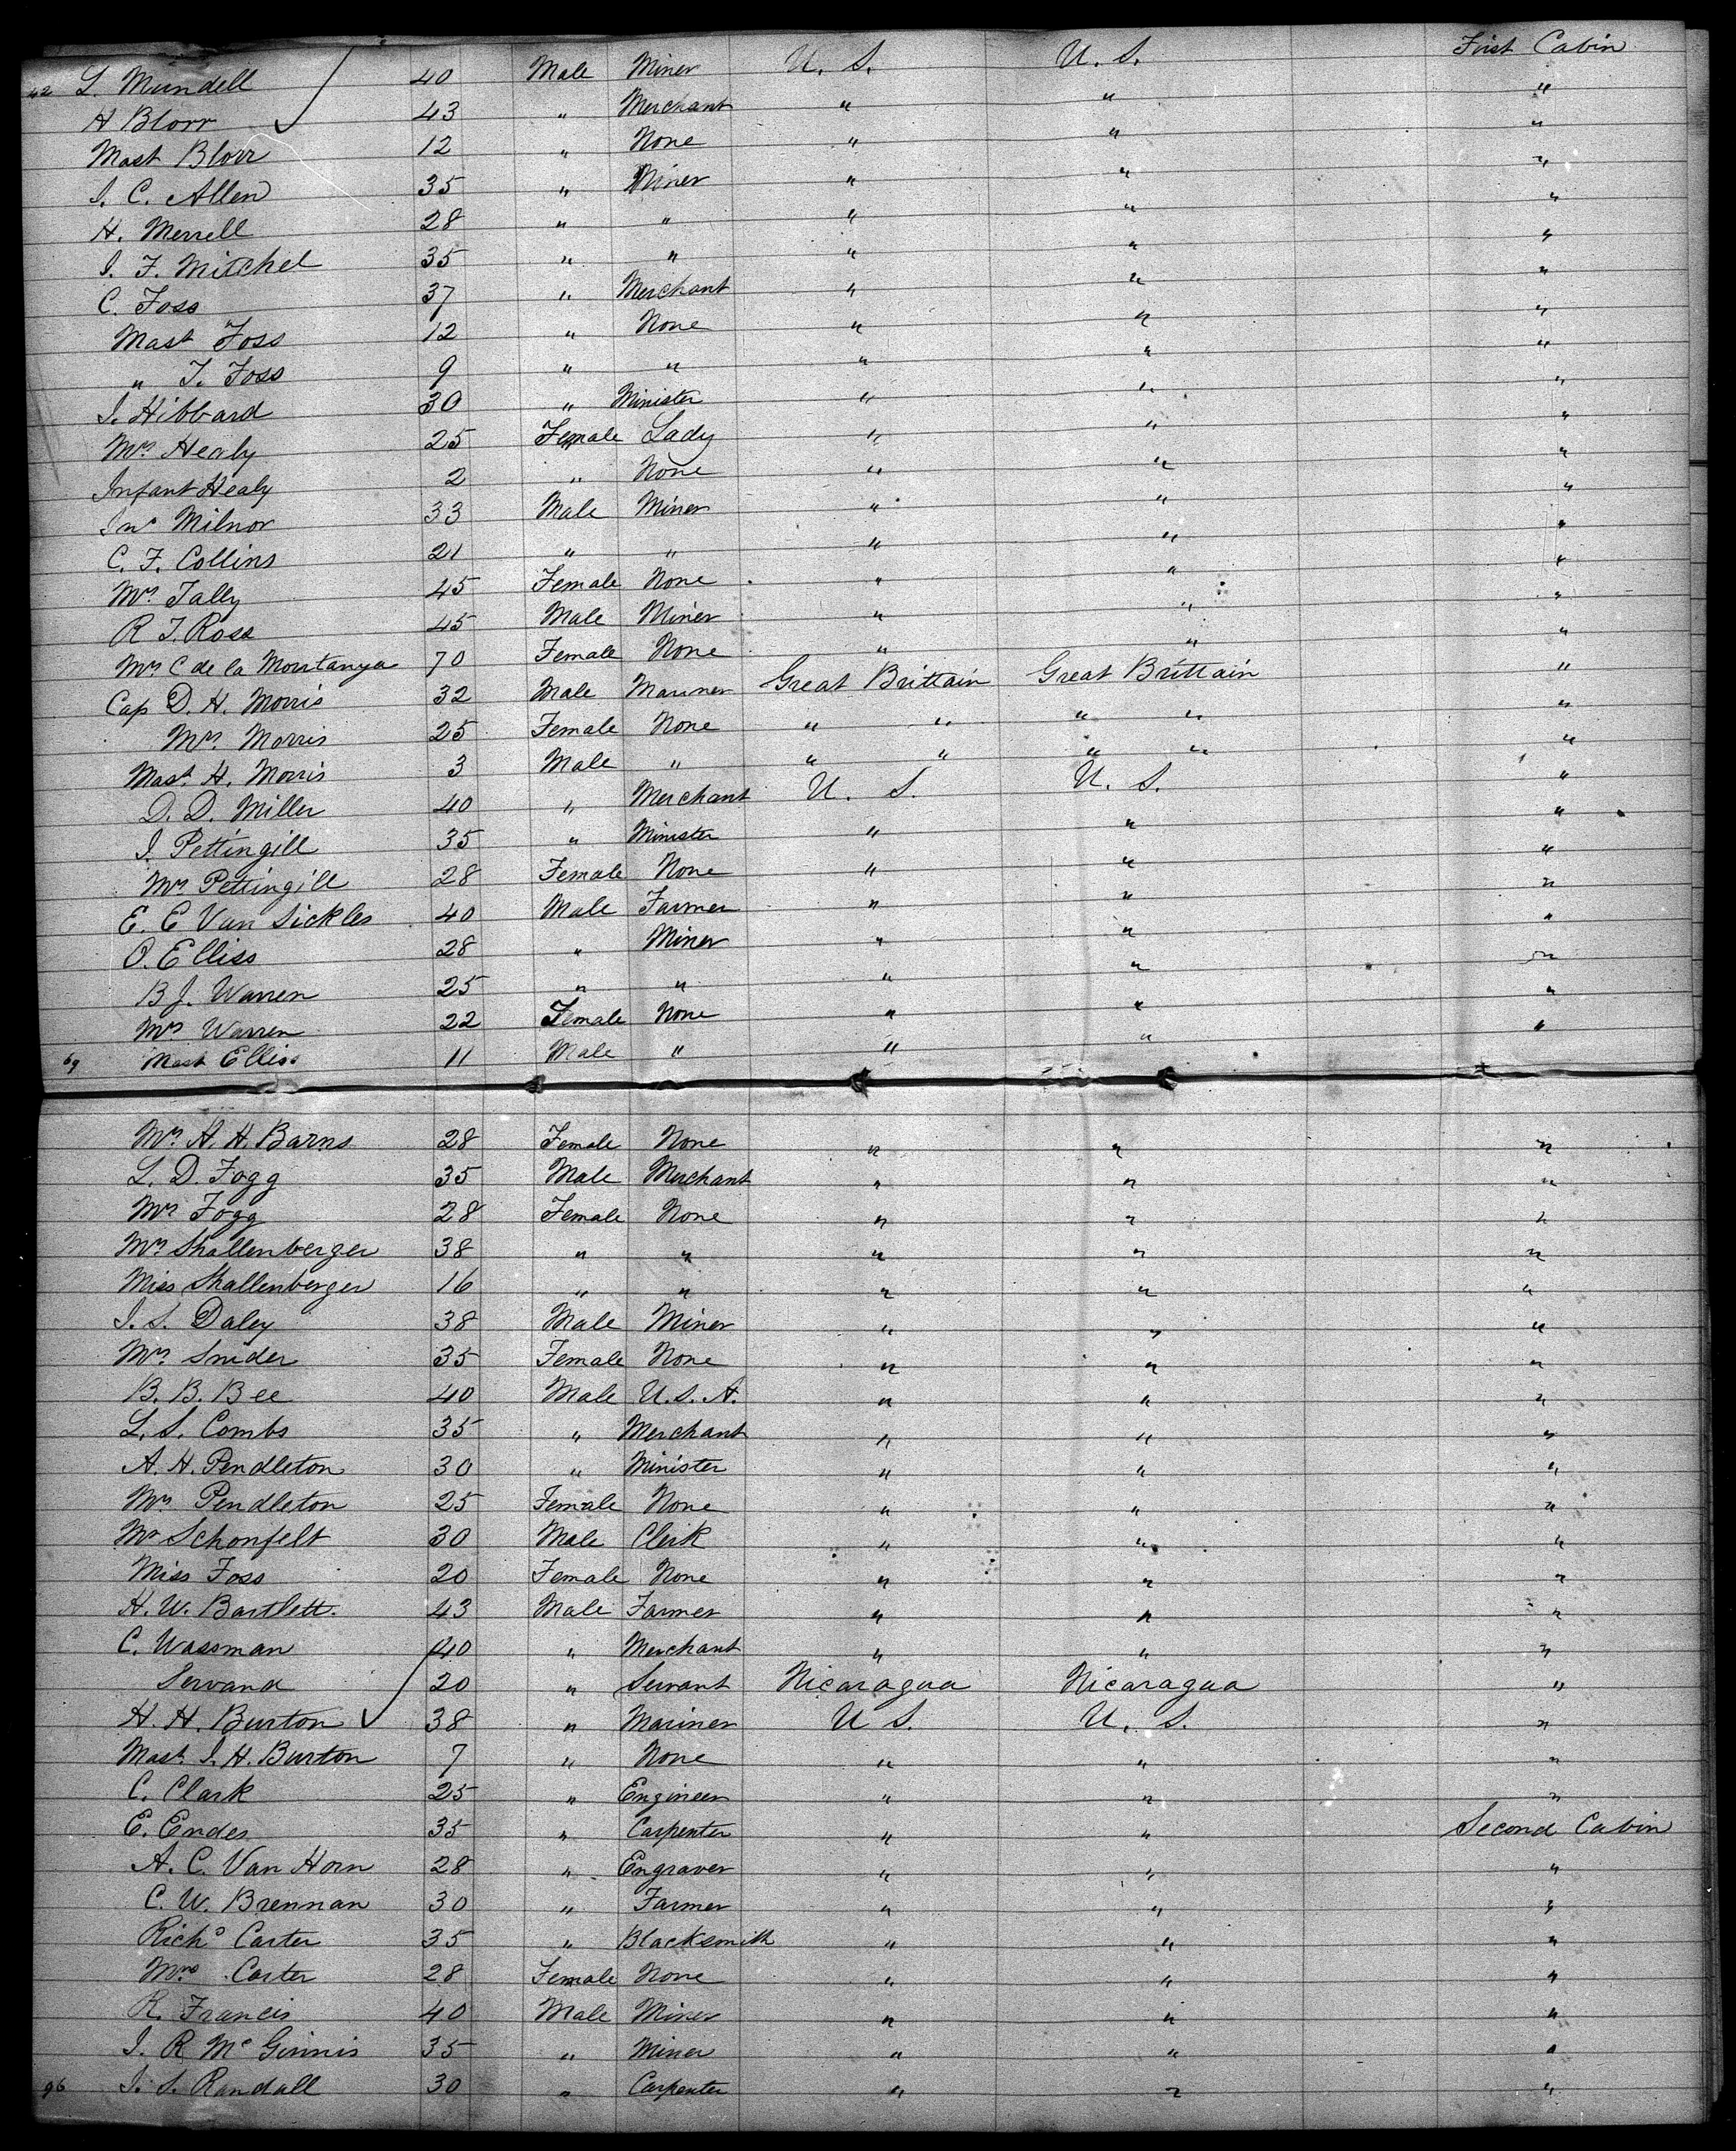 42 L. Mundell 40 Male Miner U. S. U. S. First Cabin
H Blorr 43 " Merchant " " "
Mast Blorr 12 " None " " "
I. C. Allen 35 " Miner " " "
H. Merrell 28 " " " " "
I. F. Mitchel 35 " " " " "
C. Foss 37 " Merchant " " "
Mast Foss 12 " None " " "
" T. Foss 9 " " " " "
I. Hibbard 30 " Minister " " "
Mrs Healy 25 Female Lady " " "
Infant Healy 2 " None " " "
Jno Milnor 33 Male Miner " " "
C. F. Collins 21 " " " " "
Mrs Tally 45 Female None " " "
R T. Ross 45 Male Miner " " "
Mrs C de la Montanya 70 Female None " " "
Cap D. H. Morris 32 Male Mariner Great Brittain Great Brittain "
Mrs Morris 25 Female None " " " " "
Mast. H. Morris 3 Male " " " " " "
D. D. Miller 40 " Merchant U. S. U. S. "
I. Pettingill 35 " Minister " " "
Mrs Pettingill 28 Female None " " "
E. E Van Sickles 40 Male Farmer " " "
O. Elliss 28 " Miner " " "
B J. Warren 25 " " " " "
Mrs Warren 22 Female None " " "
69 Mast Elliss 11 Male " " " "
Mrs H. H. Barns 28 Female None " " "
L. D. Fogg 35 Male Merchant " " "
Mrs Fogg 28 Female None " " "
Mrs Shallenberger 38 " " " " "
Miss Shallenberger 16 " " " " "
I. S. Daley 38 Male Miner " " "
Mrs Snider 35 Female None " " "
B. B. Bee 40 Male U.S.A. " " "
L. S. Combs 35 " Merchant " " "
A. H. Pendleton 30 " Minister " " "
Mrs Pendleton 25 Female None " " "
Mr Schonfelt 30 Male Clerk " " "
Miss Foss 20 Female None " " "
H. W. Bartlett. 43 Male Farmer " " "
C. Wassman 40 " Merchant " " "
Servand 20 " Servant Nicaragua Nicaragua "
H. H. Burton 38 " Mariner U S. U. S. "
Mast. I. H. Burton 7 " None " " "
C. Clark 25 " Engineer " " "
E. Endes 35 " Carpenter " " Second Cabin
A. C. Van Horn 28 " Engraver " " "
C. W. Brennan 30 " Farmer " " "
Richd Carter 35 " Blacksmith " " "
Mrs Carter 28 Female None " " "
R. Francis 40 Male Miner " " "
I. R McGinnis 35 " Miner " " "
96 I. S. Randall 30 " Carpenter " " "